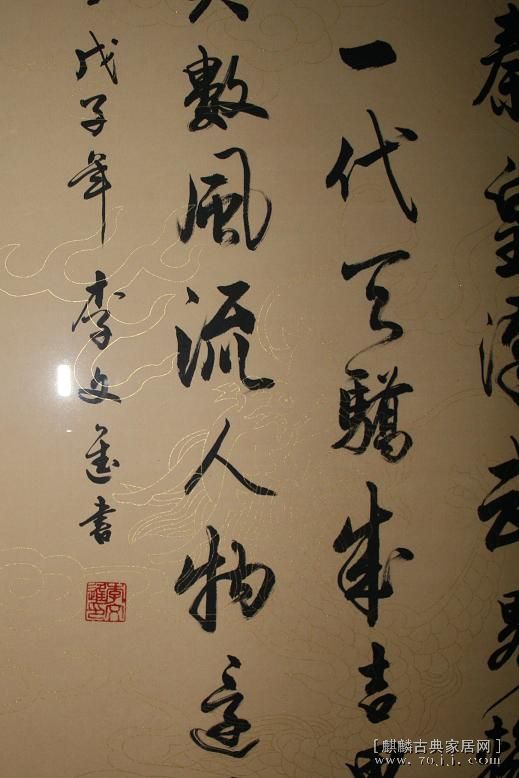 秦皇漢武畧輸
一代天驕成吉
數風流人物還
戊子年李文進書
[麒麟古典家居网]
www.70jj.com